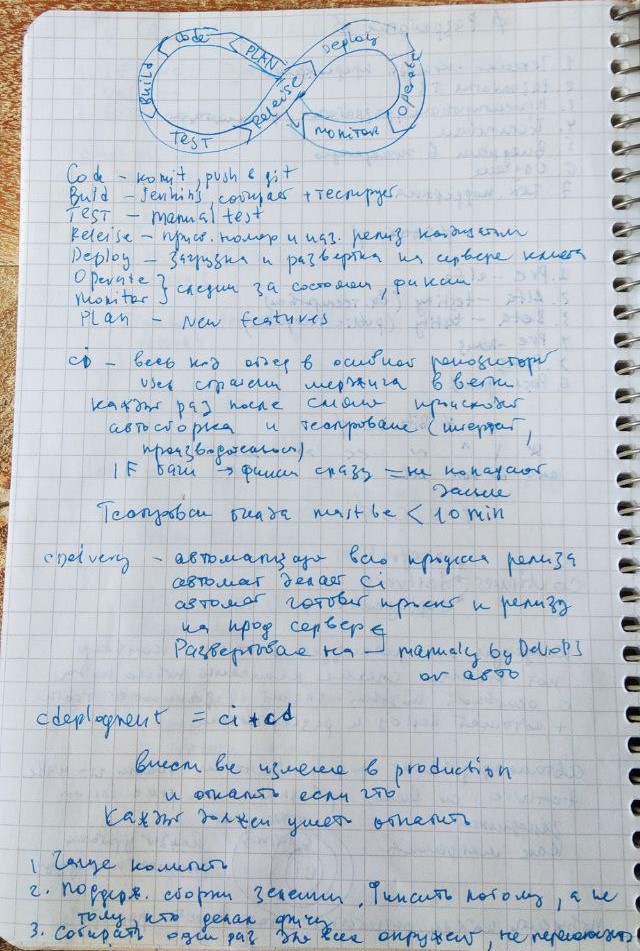 Code PLAN Deploy
Build Releise Operate
TEST Monitor
Code - комит, push в git
Build - Jenkins, собирает + тестирует
TEST - manual test
Releise - присв. номер и наз. релиз
Deploy - загрузка и развертка на сервере клиента
Operate
Monitor } следим за состоянием, фиксим
Plan - New features
ci - весь код в основной репозиторий
в ветки
каждый раз после происходит
автосборка и тестирование (интеграт,
производительност)
IF баги → фиксим сразу = не попадают
дальше
must be < 10 min
cDelivery - автоматизация всего процесса релиза
автомат делает Ci
автомат готовит проект к релизу
на прод сервере
Развертование на manualy by DevOPS
or авто
cdeployment = ci + cd
внести все изменения в production
и откатить если что
Каждый должен уметь откатить
1 Чаще комитить
2. Поддерж. сборки зелеными, Фиксить потому, а не
тому, кто делал фичу
3. Собирать один раз для всех окружений, не